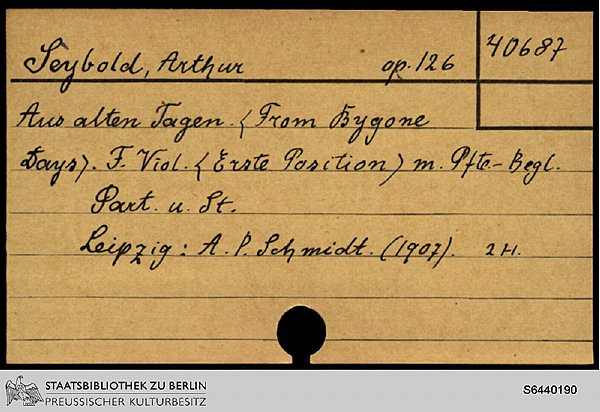 Seybold, Arthur op. 126 40687
Aus alten Tagen. (From Bygone
Days). F. Viol. (Erste Position) m. Pfte-Begl.
Part. u. St.
Leipzig: A. P. Schmidt. (1907). 2 H.
STAATSBIBLIOTHEK ZU BERLIN
PREUSSISCHER KULTURBESITZ
S6440190